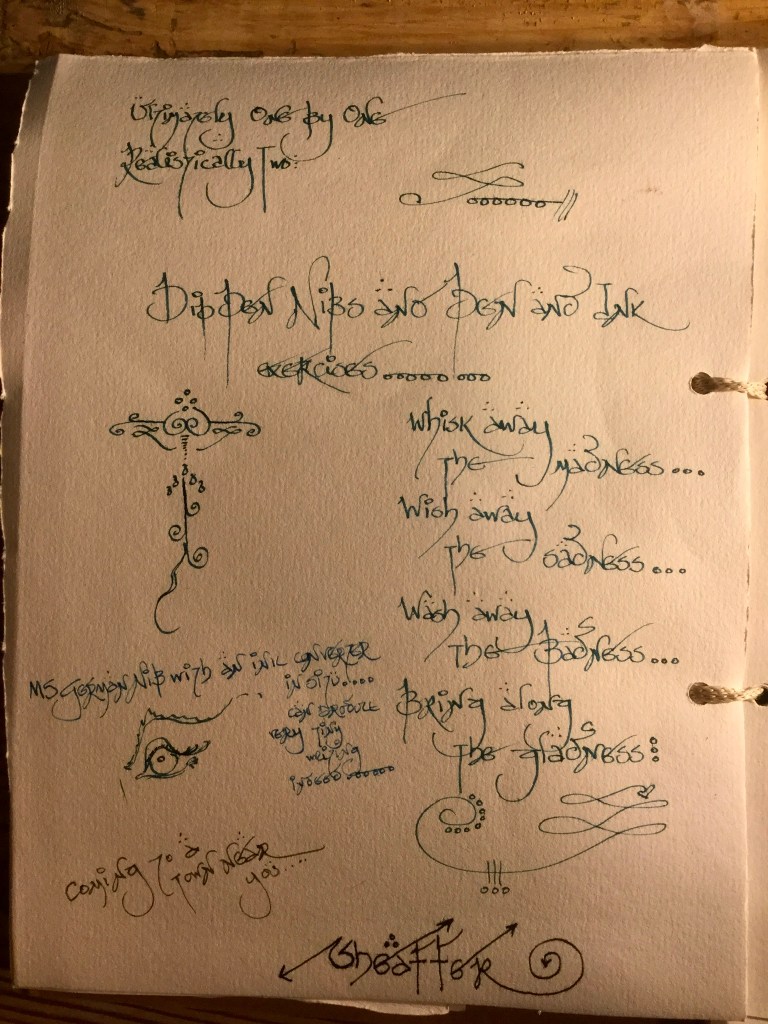 Ultimately One by One
Realistically Two:
Dip Pen Nibs and Pen and Ink
exercises........ ...
Whisk away
the madness...
Wish away
the sadness...
Wash away
the Badness...
Bring along
the gladness:
MS German Nib with an ink converter
in situ....
can produce
very tiny
writing
indeed......
Coming to a
town near
you....
Sheaffer